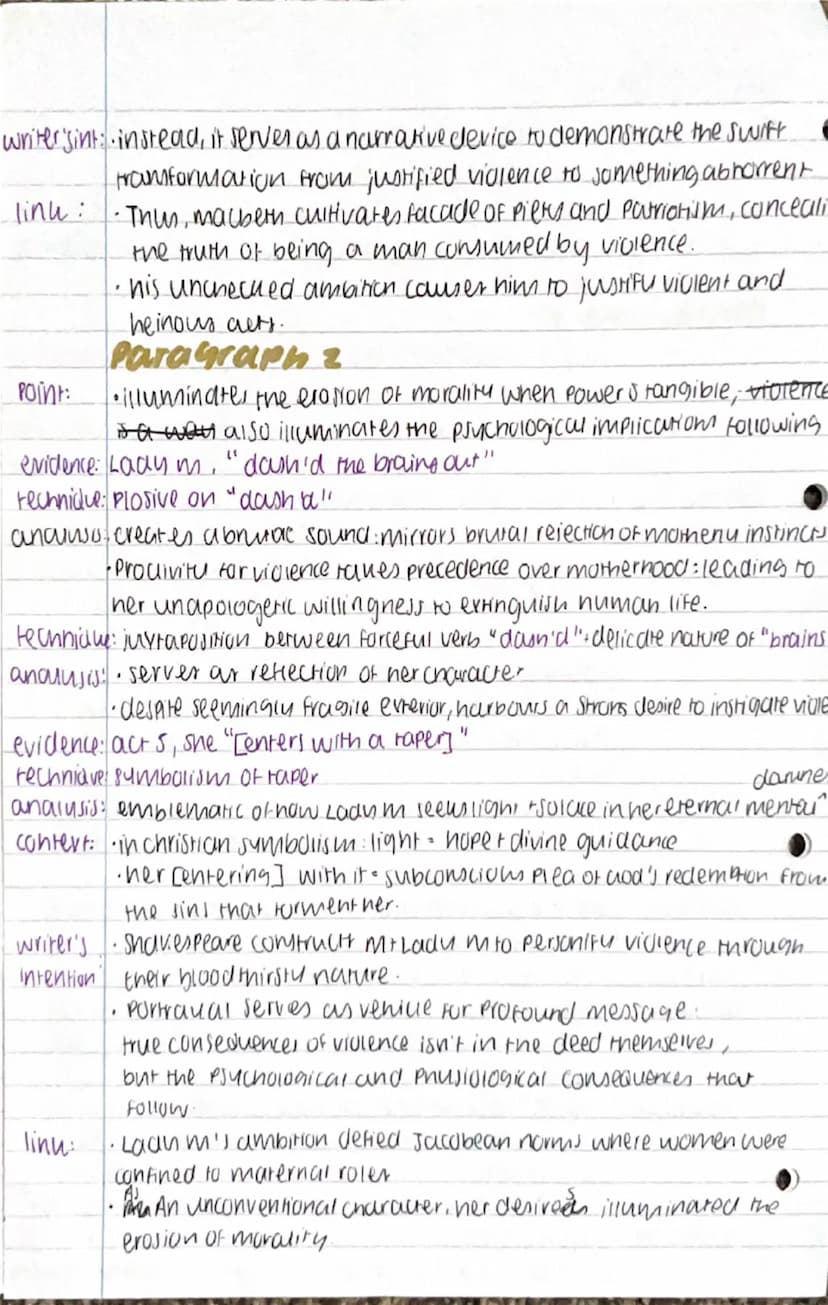 writer'sint: · instead, it serves as a narrative device to demonstrate the swift
transformation from justified violence to something abhorrent
link : · Thus, macbeth cultivates facade of piety and patriotism, conceali
the truth of being a man consumed by violence.
· his unchecked ambition causes him to justify violent and
heinous acts.
Paragraph 2
point: · illuminates the erosion of morality when power is tangible, violence
is a way also illuminates the psychological implications following
evidence: Lady m, "dash'd the brains out"
technique: plosive on "dash'd"
analysis: creates abrupt sound: mirrors brutal rejection of motherly instincts
· Proclivity for violence takes precedence over motherhood: leading to
her unapologetic willingness to extinguish human life.
technique: juxtaposition between forceful verb "dash'd" + delicate nature of "brains
analysis: · serves as reflection of her character
· despite seemingly fragile exterior, harbours a strong desire to instigate viole
evidence: act 5, she "[enters with a taper]"
technique: symbolism of taper
analysis: emblematic of how Lady m seeks light + solace in her eternal mental ^
darkne
context: · in christian symbolism: light = hope + divine guidance
· her [entering] with it = subconscious plea of God's redemption from
the sins that torment her.
writer's · Shakespeare constructs M + Lady m to personify violence through
intention their bloodthirsty nature.
· Portrayal serves as vehicle for profound message:
true consequences of violence isn't in the deed themselves,
but the psychological and physiological consequences that
follow.
link: · Lady m's ambition defied Jacobean norms where women were
confined to maternal roles
· As An unconventional character, her desires illuminated the
erosion of morality.